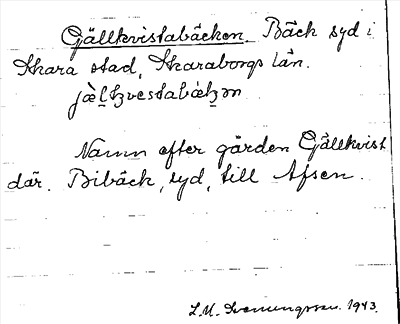 Gällkvistabäcken. Bäck syd i
Skara stad, Skaraborgs län.
jæ̀l̥ꜩvestabæ̀ꜩən
Namn efter gården Gällkvist
där. Bibäck, syd, till Afsen.
L.M. Svenungsson. 1943.